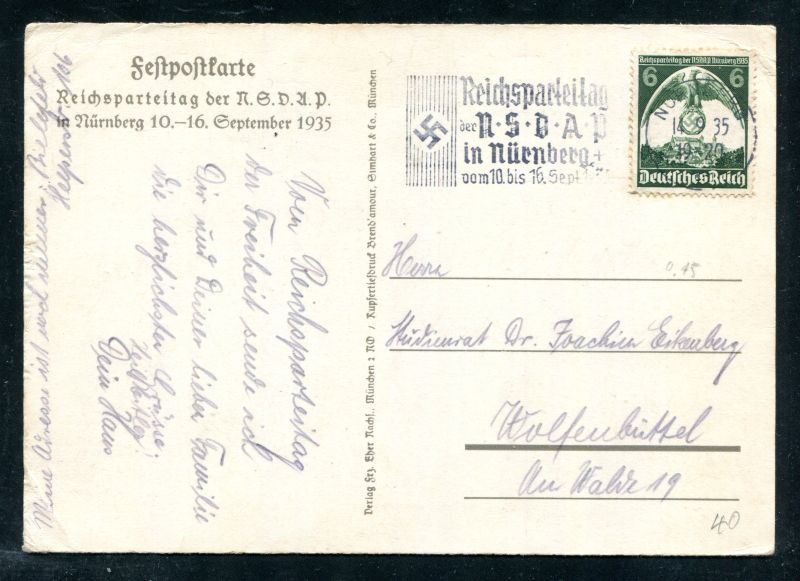 Festpostkarte
Reichsparteitag der N.S.D.A.P.
in Nürnberg 10.–16. September 1935
Vom Reichsparteitag
der Freiheit sende ich
Dir und Deiner lieben Familie
die herzlichsten Grüsse.
Heil Hitler
Dein Hans
Meine Adresse ist und Bielefeld
106
Verlag Frz. Eher Nachf., München 2 NO / Kupfertiefdruck Brend'amour, Simhart & Co., München
Reichsparteitag
der N·S·D·A·P
in Nürnberg
vom 10. bis 16. Sept. 1935
14.9.35
19-20
Reichsparteitag der NSDAP Nürnberg 1935
6 6
Deutsches Reich
Herrn
0.45
Studienrat Dr. Joachim Eikenberg
Wolfenbüttel
Am Walde 19
40